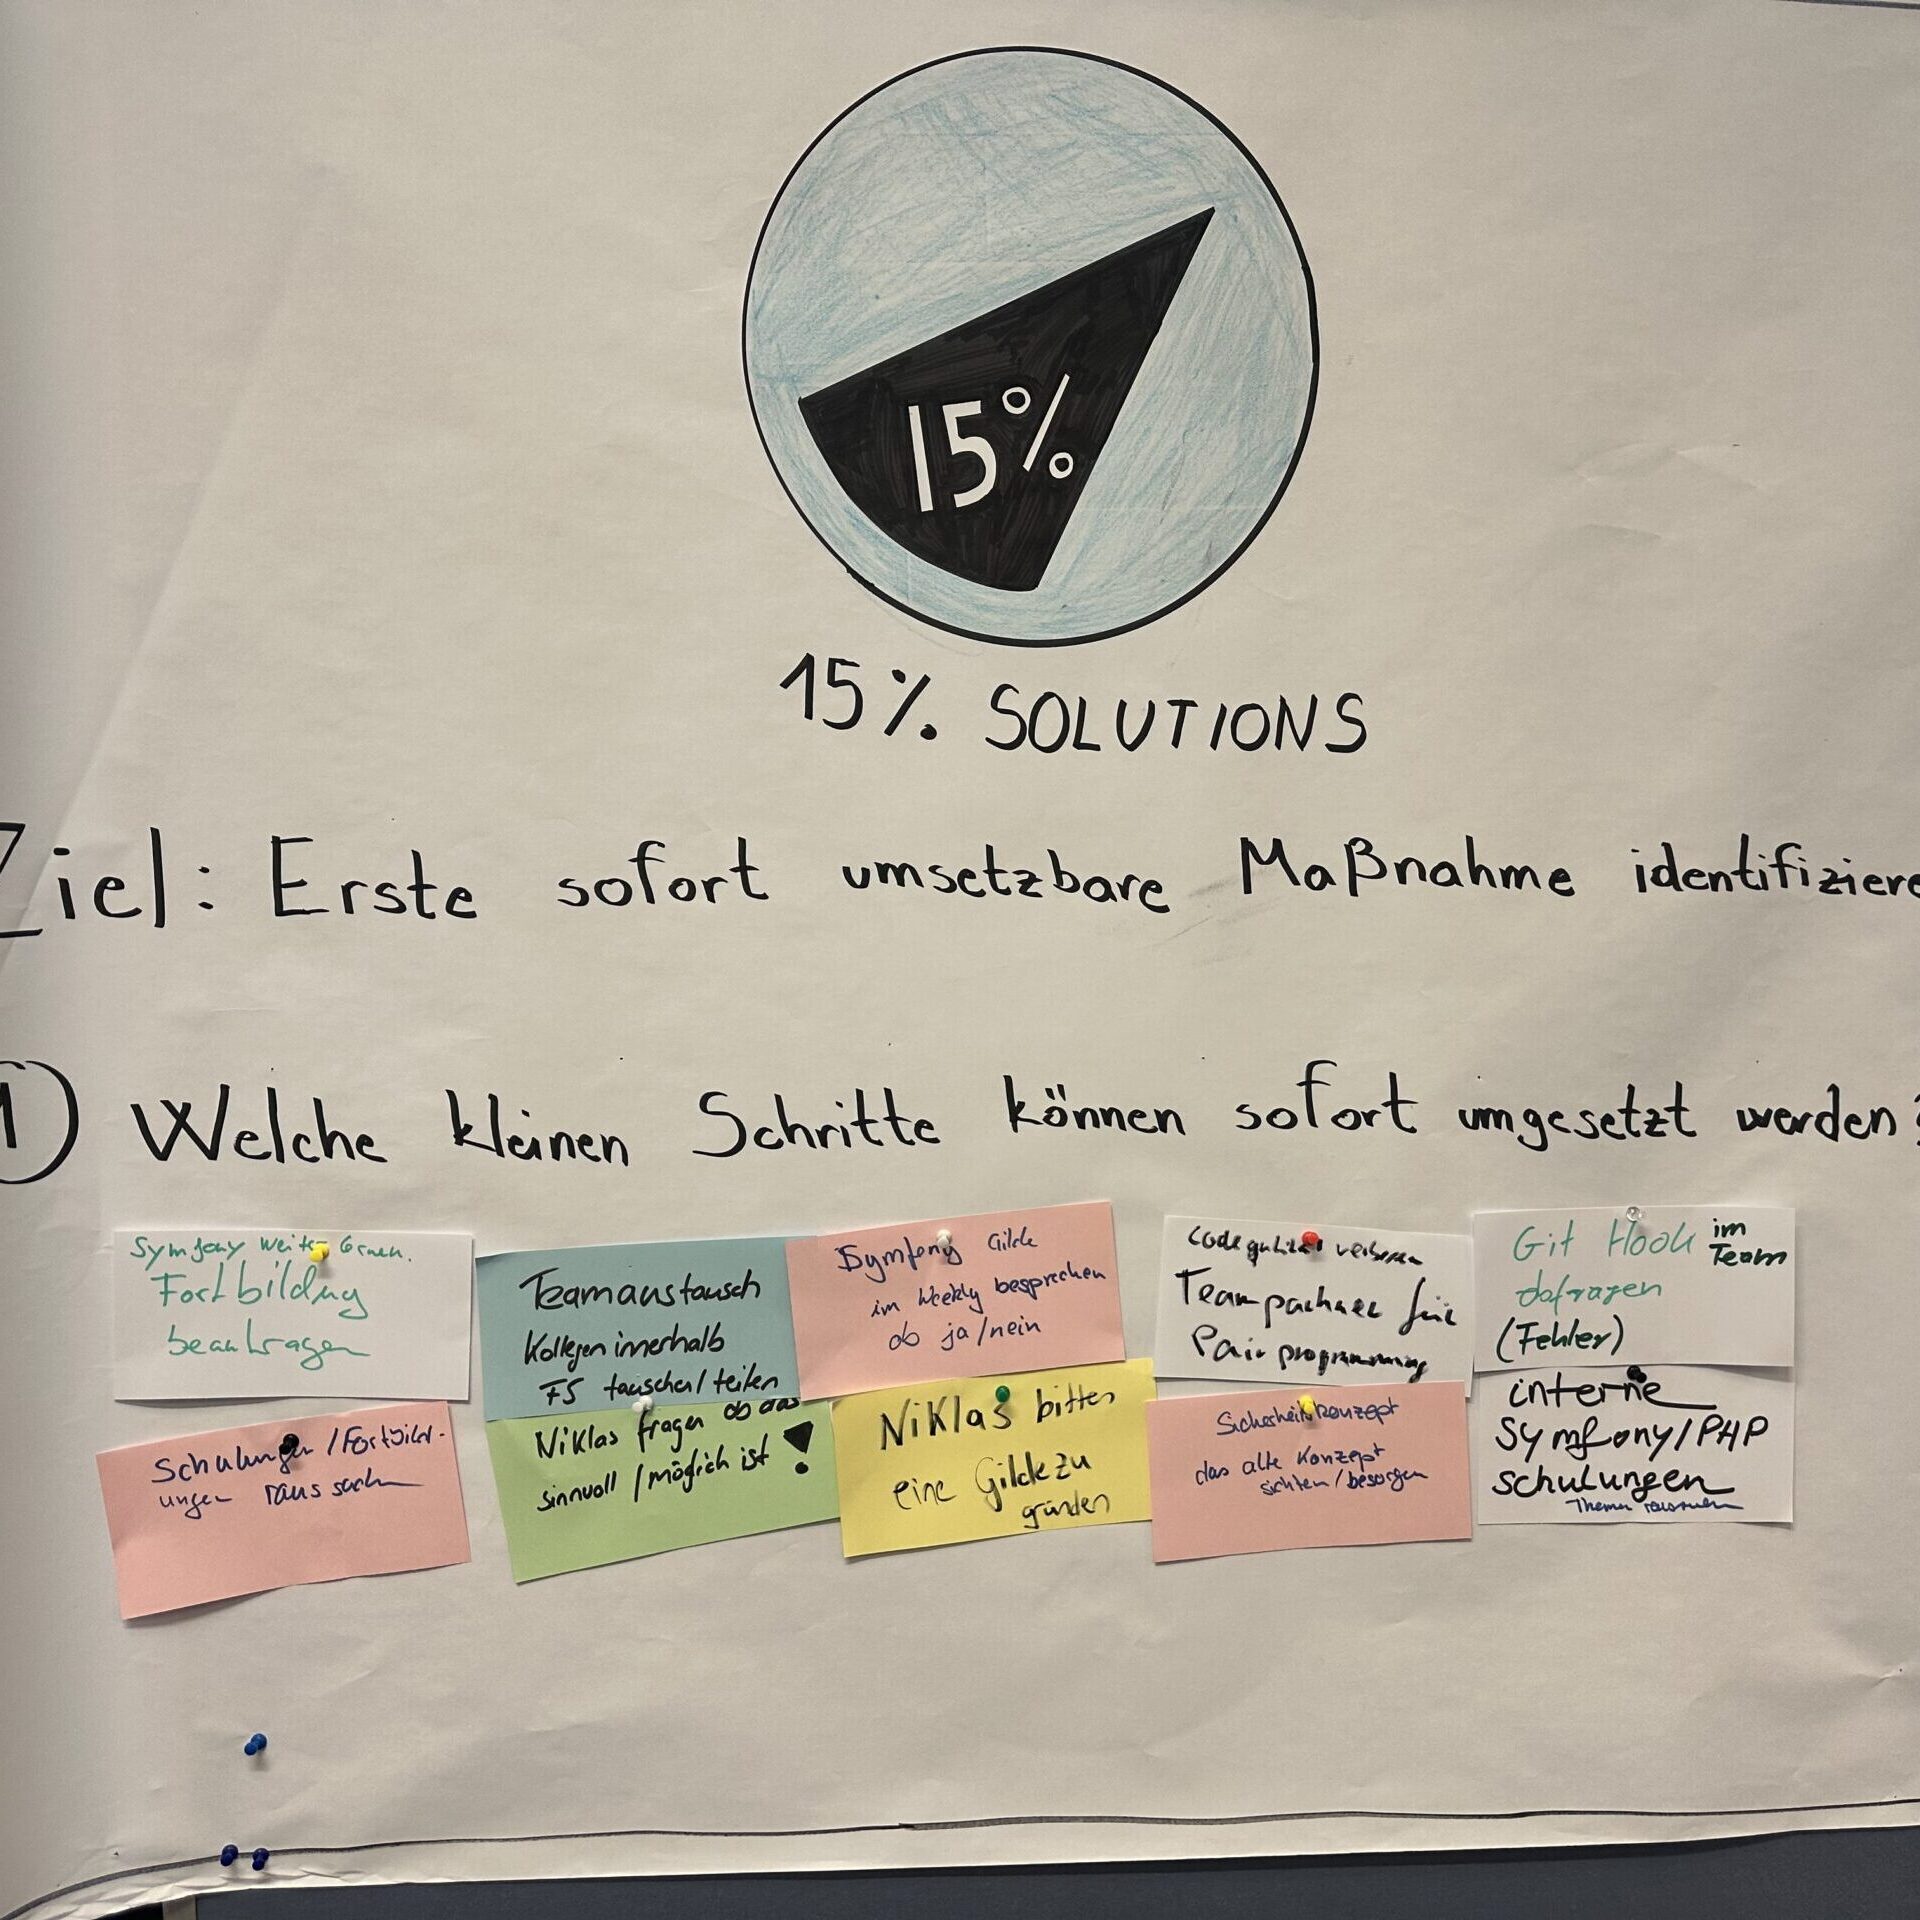 15%
15% SOLUTIONS
Ziel: Erste sofort umsetzbare Maßnahme identifiziere
1) Welche kleinen Schritte können sofort umgesetzt werden?
Symfony weiter lernen.
Fortbildung
beantragen
Teamaustausch
Kollegen innerhalb
FS tauschen/teilen
Symfony Gilde
im Weekly besprechen
ob ja/nein
Codequalität verbessern
Teampartner für
Pairprogramming
Git Hook im
Team
abfragen
(Fehler)
Schulungen/Fortbild-
ungen raus suchen
Niklas fragen ob das
sinnvoll/möglich ist !
Niklas bitten
eine Gilde zu
gründen
Sicherheitskonzept
das alte Konzept
sichten/besorgen
interne
Symfony/PHP
schulungen
Themen